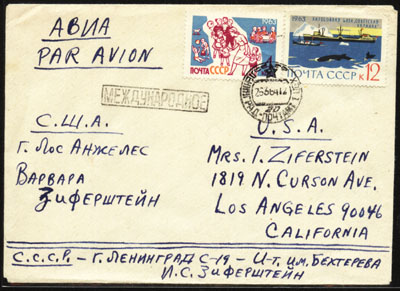 АВИА
PAR AVION
1963
ПОЧТА СССР
1963
КИТОБОЙНАЯ БАЗА „СОВЕТСКАЯ
ПОЧТА СССР К 12
МЕЖДУНАРОДНОЕ
С.Ш.А.
Г. Лос Анжелес
Варвара
Зиферштейн
U.S.A.
MRS. I. ZIFERSTEIN
1819 N. CURSON AVE.
LOS ANGELES 90046
CALIFORNIA
С.С.С.Р. – Г. ЛЕНИНГРАД С-19 – И-Т. ИМ. БЕХТЕРЕВА
И.С. ЗИФЕРШТЕЙН